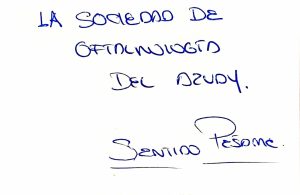 LA SOCIEDAD DE
OFTALMOLOGÍA
DEL AZUAY.
SENTIDO PESAME.